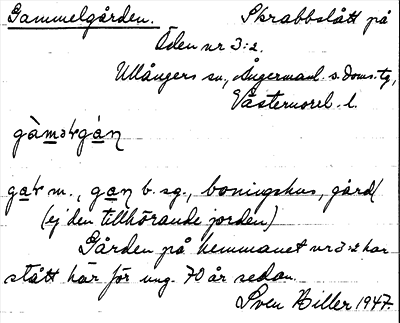 Gammelgården. Skrabbslått på
Öden nr 3:2.
Ullångers sn, Ångermanl. s. doms. tg,
Västernorrl. l.
gàmalgán
gal m., gan b. sg., boningshus, gård
(ej den tillhörande jorden)
Gården på hemmanet nr 3:2 har
stått här för ung. 70 år sedan.
Sven Hiller 1947.